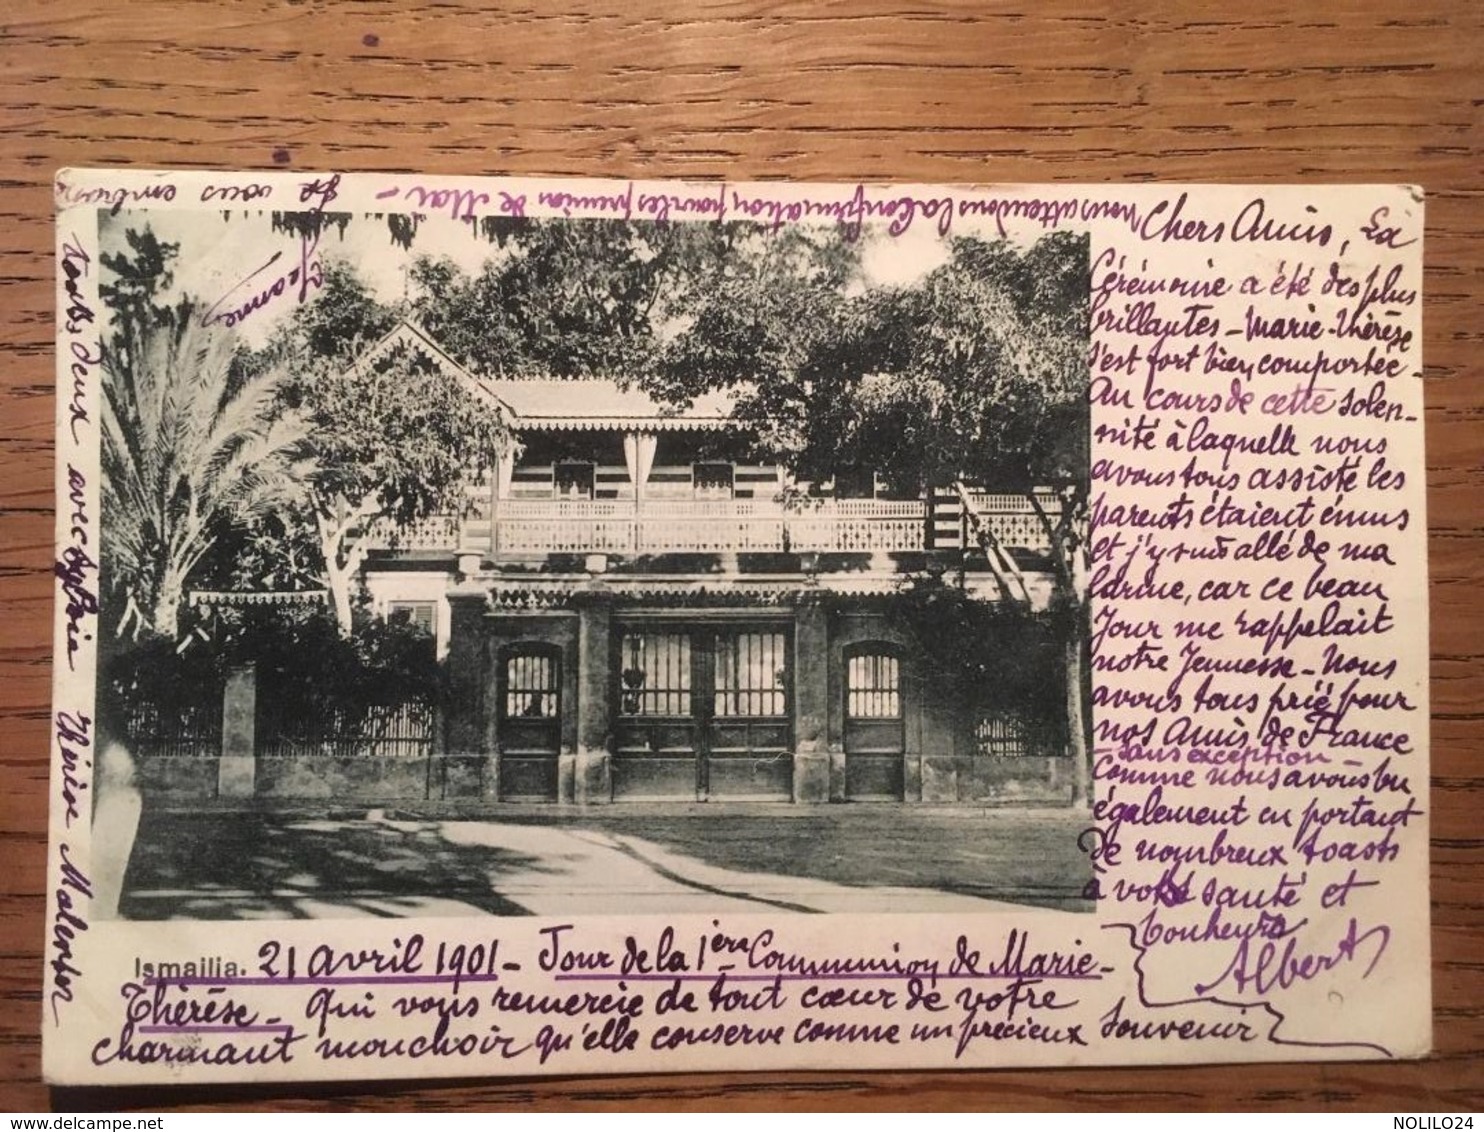 Ismailia. 21 avril 1901 - Jour de la 1ère Communion de Marie-
Thérèse - qui vous remercie de tout cœur de votre
charmant mouchoir qu'elle conserve comme un précieux souvenir
Chers Amis, La
Cérémonie a été des plus
brillantes - Marie-Thérèse
s'est fort bien comportée -
Au cours de cette solen-
nité à laquelle nous
avons tous assisté les
parents étaient émus
et j'y suis allé de ma
larme, car ce beau
Jour me rappelait
notre Jeunesse - Nous
avons tous prié pour
nos Amis de France
sans exception
comme nous avons bu
également en portant
de nombreux toasts
à votre santé et
bonheurs
Albert
nous attendons la Confirmation pour les premiers de Mai -
Je vous embrasse
toutes deux avec
Thérèse
Jeanne
NOLILO24